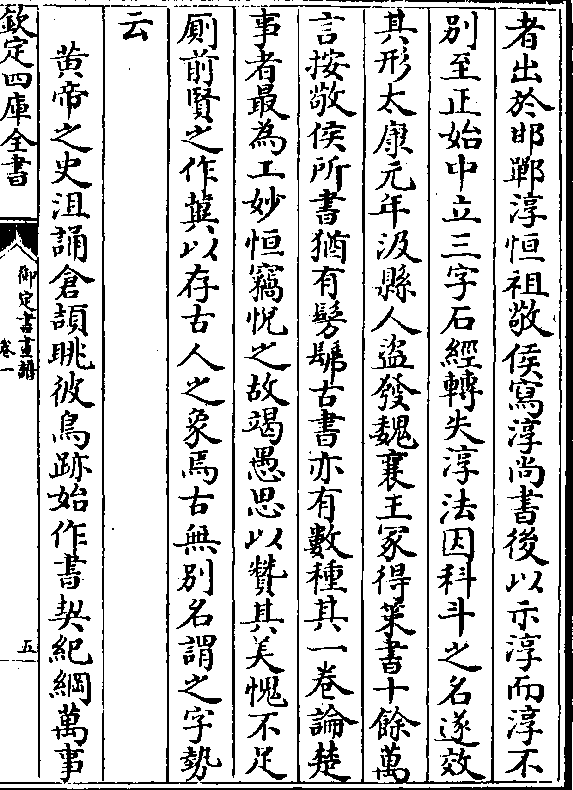 者出於邯鄲淳恒祖敬侯寫淳尚書後以示淳而淳不
别至正始中立三字石經轉失淳法因科斗之名遂效
其形太康元年汲縣人盜發魏襄王冢得䇿書十餘萬
言按敬侯所書猶有髣髴古書亦有數種其一卷論楚
事者最為工妙恒竊悦之故竭愚思以贊其美愧不足
厠前賢之作冀以存古人之象焉古無别名謂之字勢
云
黄帝之史沮誦倉頡眺彼鳥跡始作書契紀綱萬事
欽定四庫全書
御定書畫譜
卷一
五